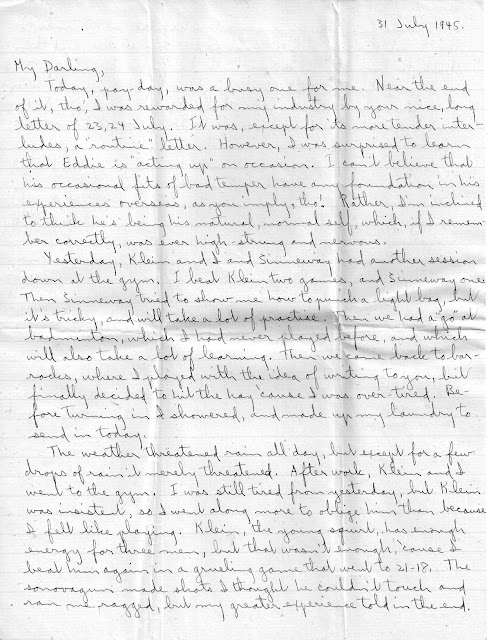 31 July 1945.
My Darling,
Today, pay day, was a busy one for me. Near the end
of it, tho', I was rewarded for my industry by your nice, long
letter of 23, 24 July. It was, except for its more tender inter-
ludes, a "routine" letter. However, I was surprised to learn
that Eddie is "acting up" on occasion. I can't believe that
his occasional fits of bad temper have any foundation in his
experiences overseas, as you imply, tho'. Rather, I'm inclined
to think he's being his natural, normal self, which, if I remem
ber correctly, was ever high-strung and nervous.
Yesterday, Klein and I and Sinneway had another session
down at the gym. I beat Klein two games, and Sinneway one.
Then Sinneway tried to show me how to punch a light bag, but
it's tricky, and will take a lot of practise. Then we had a "go" at
badminton, which I had never played before, and which
will also take a lot of learning. Then we came back to bar-
racks, where I played with the idea of writing to you, but
finally decided to hit the hay 'cause I was over-tired. Be-
fore turning in I showered, and made up my laundry to
send in today.
The weather threatened rain all day, but except for a few
drops of rain it merely threatened. After work, Klein and I
went to the gym. I was still tired from yesterday, but Klein
was insistent, so I went along more to oblige him than because
I felt like playing. Klein, the young squirt, has enough
energy for three men, but that wasn't enough, 'cause I
beat him again in a grueling game that went to 21-18. The
sonovagun made shots I thought he couldn't touch and
ran me ragged, but my greater experience told in the end.